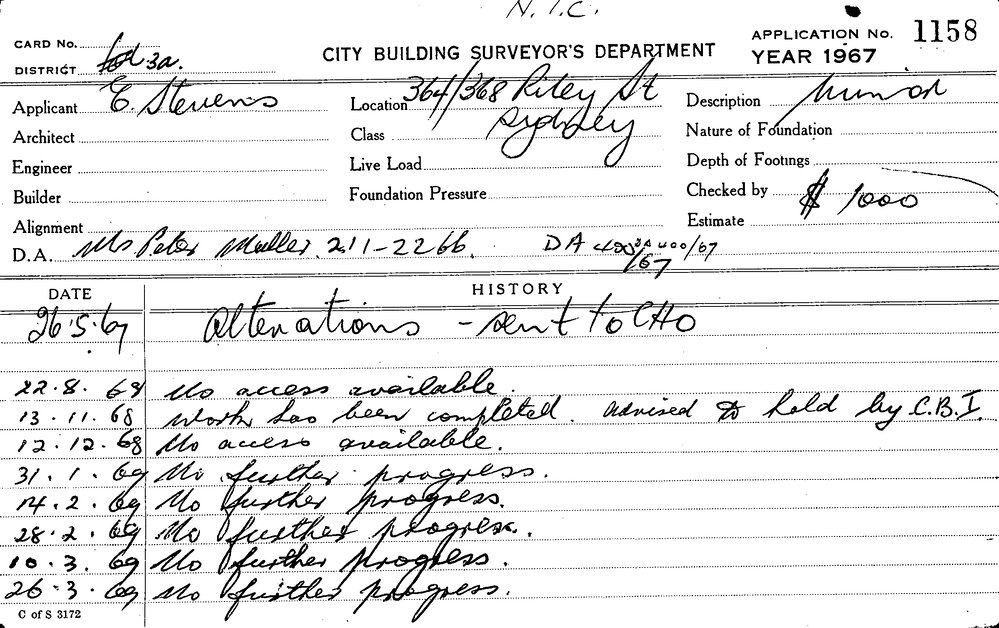 N.I.C.
CARD No.
DISTRICT 3a.
CITY BUILDING SURVEYOR'S DEPARTMENT
APPLICATION No. 1158
YEAR 1967
Applicant E. Stevens
Location 364/368 Riley St
Sydney
Description
Architect
Class
Nature of Foundation
Engineer
Live Load
Depth of Footings
Builder
Foundation Pressure
Checked by
Alignment
Estimate $ 1000
D.A. Ms Peter Muller 211-2266. DA /67
DATE HISTORY
26.5.67 Alterations - sent to CHO
22.8.68 No access available.
13.11.68 Work has been completed. Advised to hold by C.B.I.
12.12.68 No access available.
31.1.69 No further progress.
14.2.69 No further progress.
28.2.69 No further progress.
10.3.69 No further progress.
26.3.69 No further progress.
C of S 3172